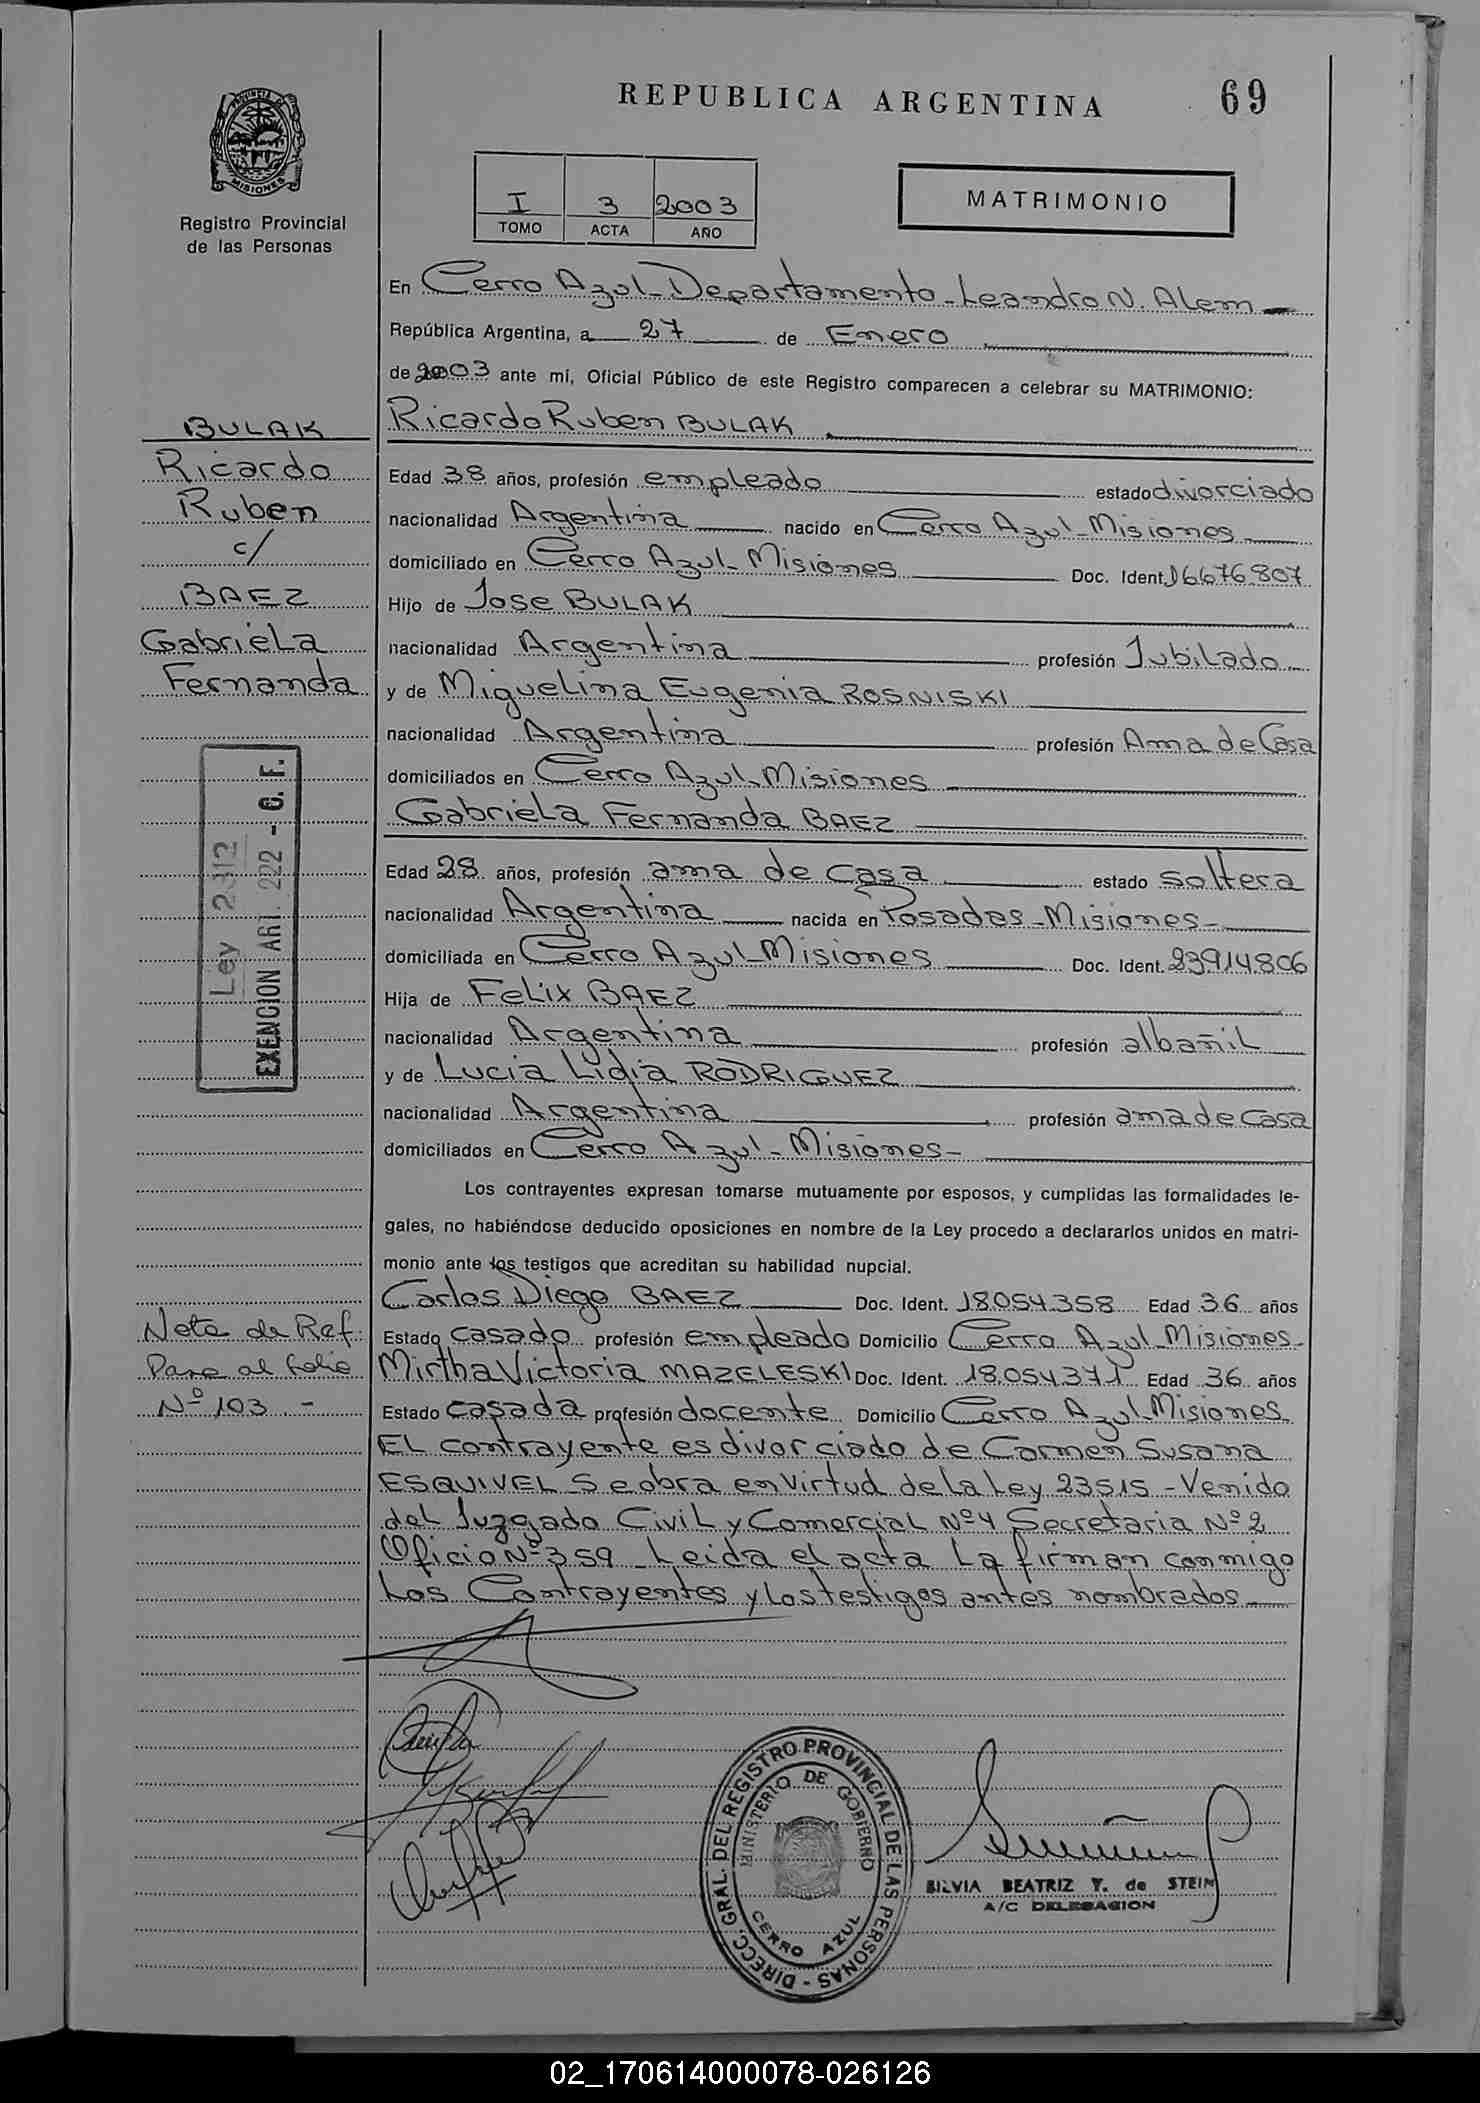 REPUBLICA ARGENTINA
69
PROVINCIA DE
MISIONES
Registro Provincial
de las Personas
I 3 2003
TOMO ACTA AÑO
MATRIMONIO
En Cerro Azul-Departamento-Leandro N. Alem
República Argentina, a 27 de Enero
de 2003 ante mí, Oficial Público de este Registro comparecen a celebrar su MATRIMONIO:
Ricardo Ruben BULAK
Edad 38 años, profesión empleado estado divorciado
nacionalidad Argentina nacido en Cerro Azul-Misiones
domiciliado en Cerro Azul-Misiones Doc. Ident. 16676.807
Hijo de Jose BULAK
nacionalidad Argentina profesión Jubilado
y de Miguelina Eugenia ROSNISKI
nacionalidad Argentina profesión Ama de Casa
domiciliados en Cerro Azul-Misiones
Gabriela Fernanda BAEZ
Edad 28 años, profesión ama de casa estado soltera
nacionalidad Argentina nacida en Posadas-Misiones-
domiciliada en Cerro Azul-Misiones Doc. Ident. 23914806
Hija de Felix BAEZ
nacionalidad Argentina profesión albañil
y de Lucia Lidia RODRIGUEZ
nacionalidad Argentina profesión ama de casa
domiciliados en Cerro Azul-Misiones-
Los contrayentes expresan tomarse mutuamente por esposos, y cumplidas las formalidades le-
gales, no habiéndose deducido oposiciones en nombre de la Ley procedo a declararlos unidos en matri-
monio ante los testigos que acreditan su habilidad nupcial.
Carlos Diego BAEZ Doc. Ident. 18.054.358 Edad 36 años
Estado casado profesión empleado Domicilio Cerro Azul-Misiones-
Mirtha Victoria MAZELESKI Doc. Ident. 18.054.371 Edad 36 años
Estado casada profesión docente Domicilio Cerro Azul-Misiones
El contrayente es divorciado de Carmen Susana
ESQUIVEL Se obra en virtud de la Ley 23515-Venido
del Juzgado Civil y Comercial Nº4 Secretaria Nº2
Oficio Nº359-Leida el acta la firman conmigo
los Contrayentes y los testigos antes nombrados-
BULAK
Ricardo
Ruben
c/
BAEZ
Gabriela
Fernanda
Ley
EXENCION ART. 222 - C. F.
Nota de Ref:
Pase al folio
Nº 103 -
DIRECC. GRAL. DEL REGISTRO PROVINCIAL DE LAS PERSONAS -
MINISTERIO DE GOBIERNO
CERRO AZUL
SILVIA BEATRIZ Y. de STEIN
A/C DELEGACION
02_170614000078-026126